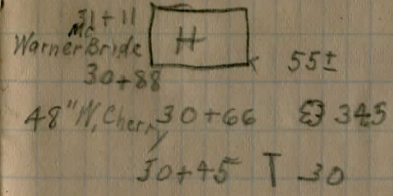 31+11
Mc
Warner Bride H
55±
30+88
48" W. Cherry 30+66 345
30+45 T 30